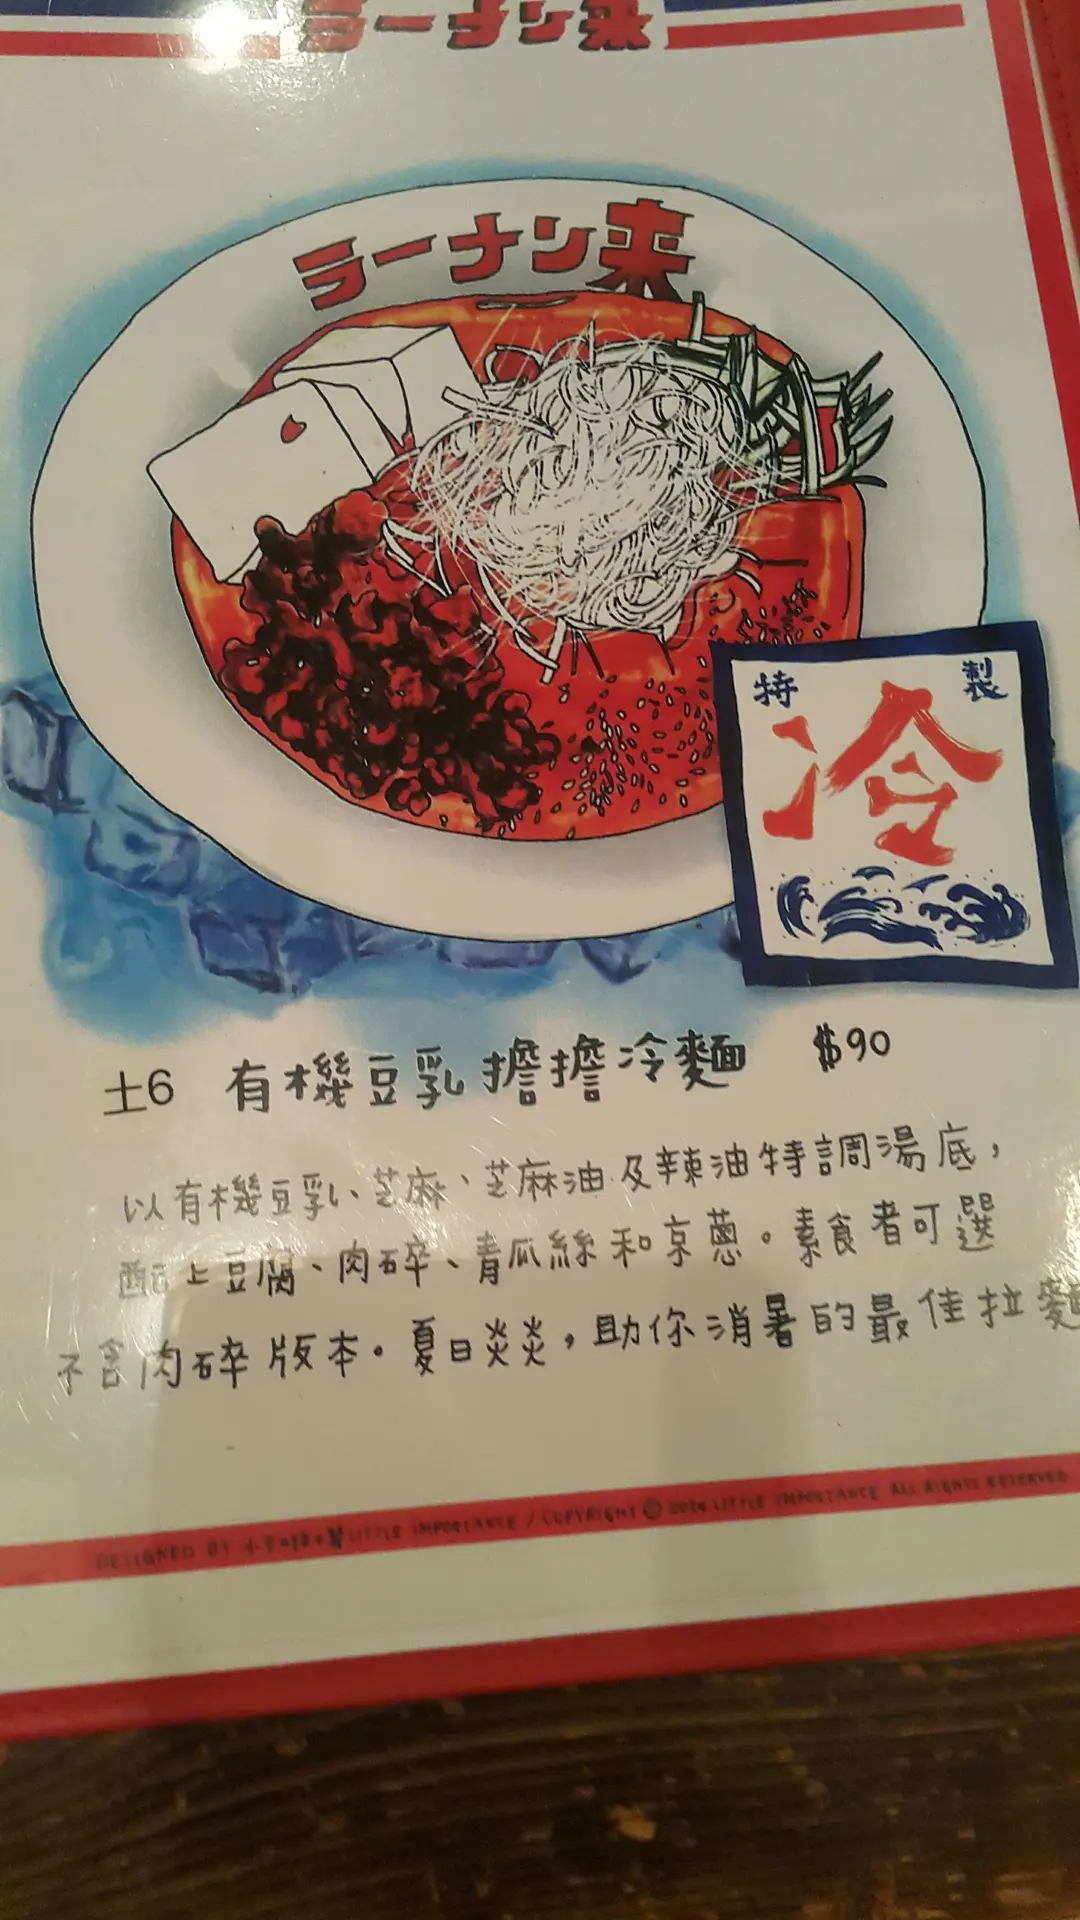 ラーナン来
ラーナン来
特製
冷
土6 有機豆乳擔擔冷麵 $90
以有機豆乳、芝麻、芝麻油及辣油特調湯底，
配上豆腐、肉碎、青瓜絲和京蔥。素食者可選
不含肉碎版本。夏日炎炎，助你消暑的最佳拉麵
DESIGNED BY LITTLE IMPORTANCE / COPYRIGHT © 2024 LITTLE IMPORTANCE ALL RIGHTS RESERVED